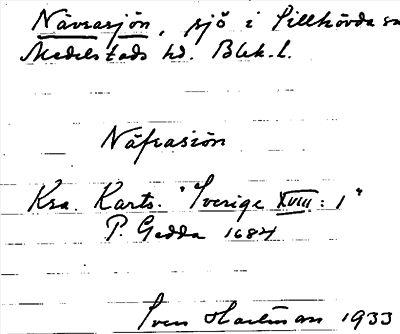 Nävrasjön, sjö i Tillhövda sn
Medelstads hd. Blek. l.
Näfrasiön
Kra. Karts. "Sverige XVIII: 1"
P. Gedda 1684
Sven Hartman 1933